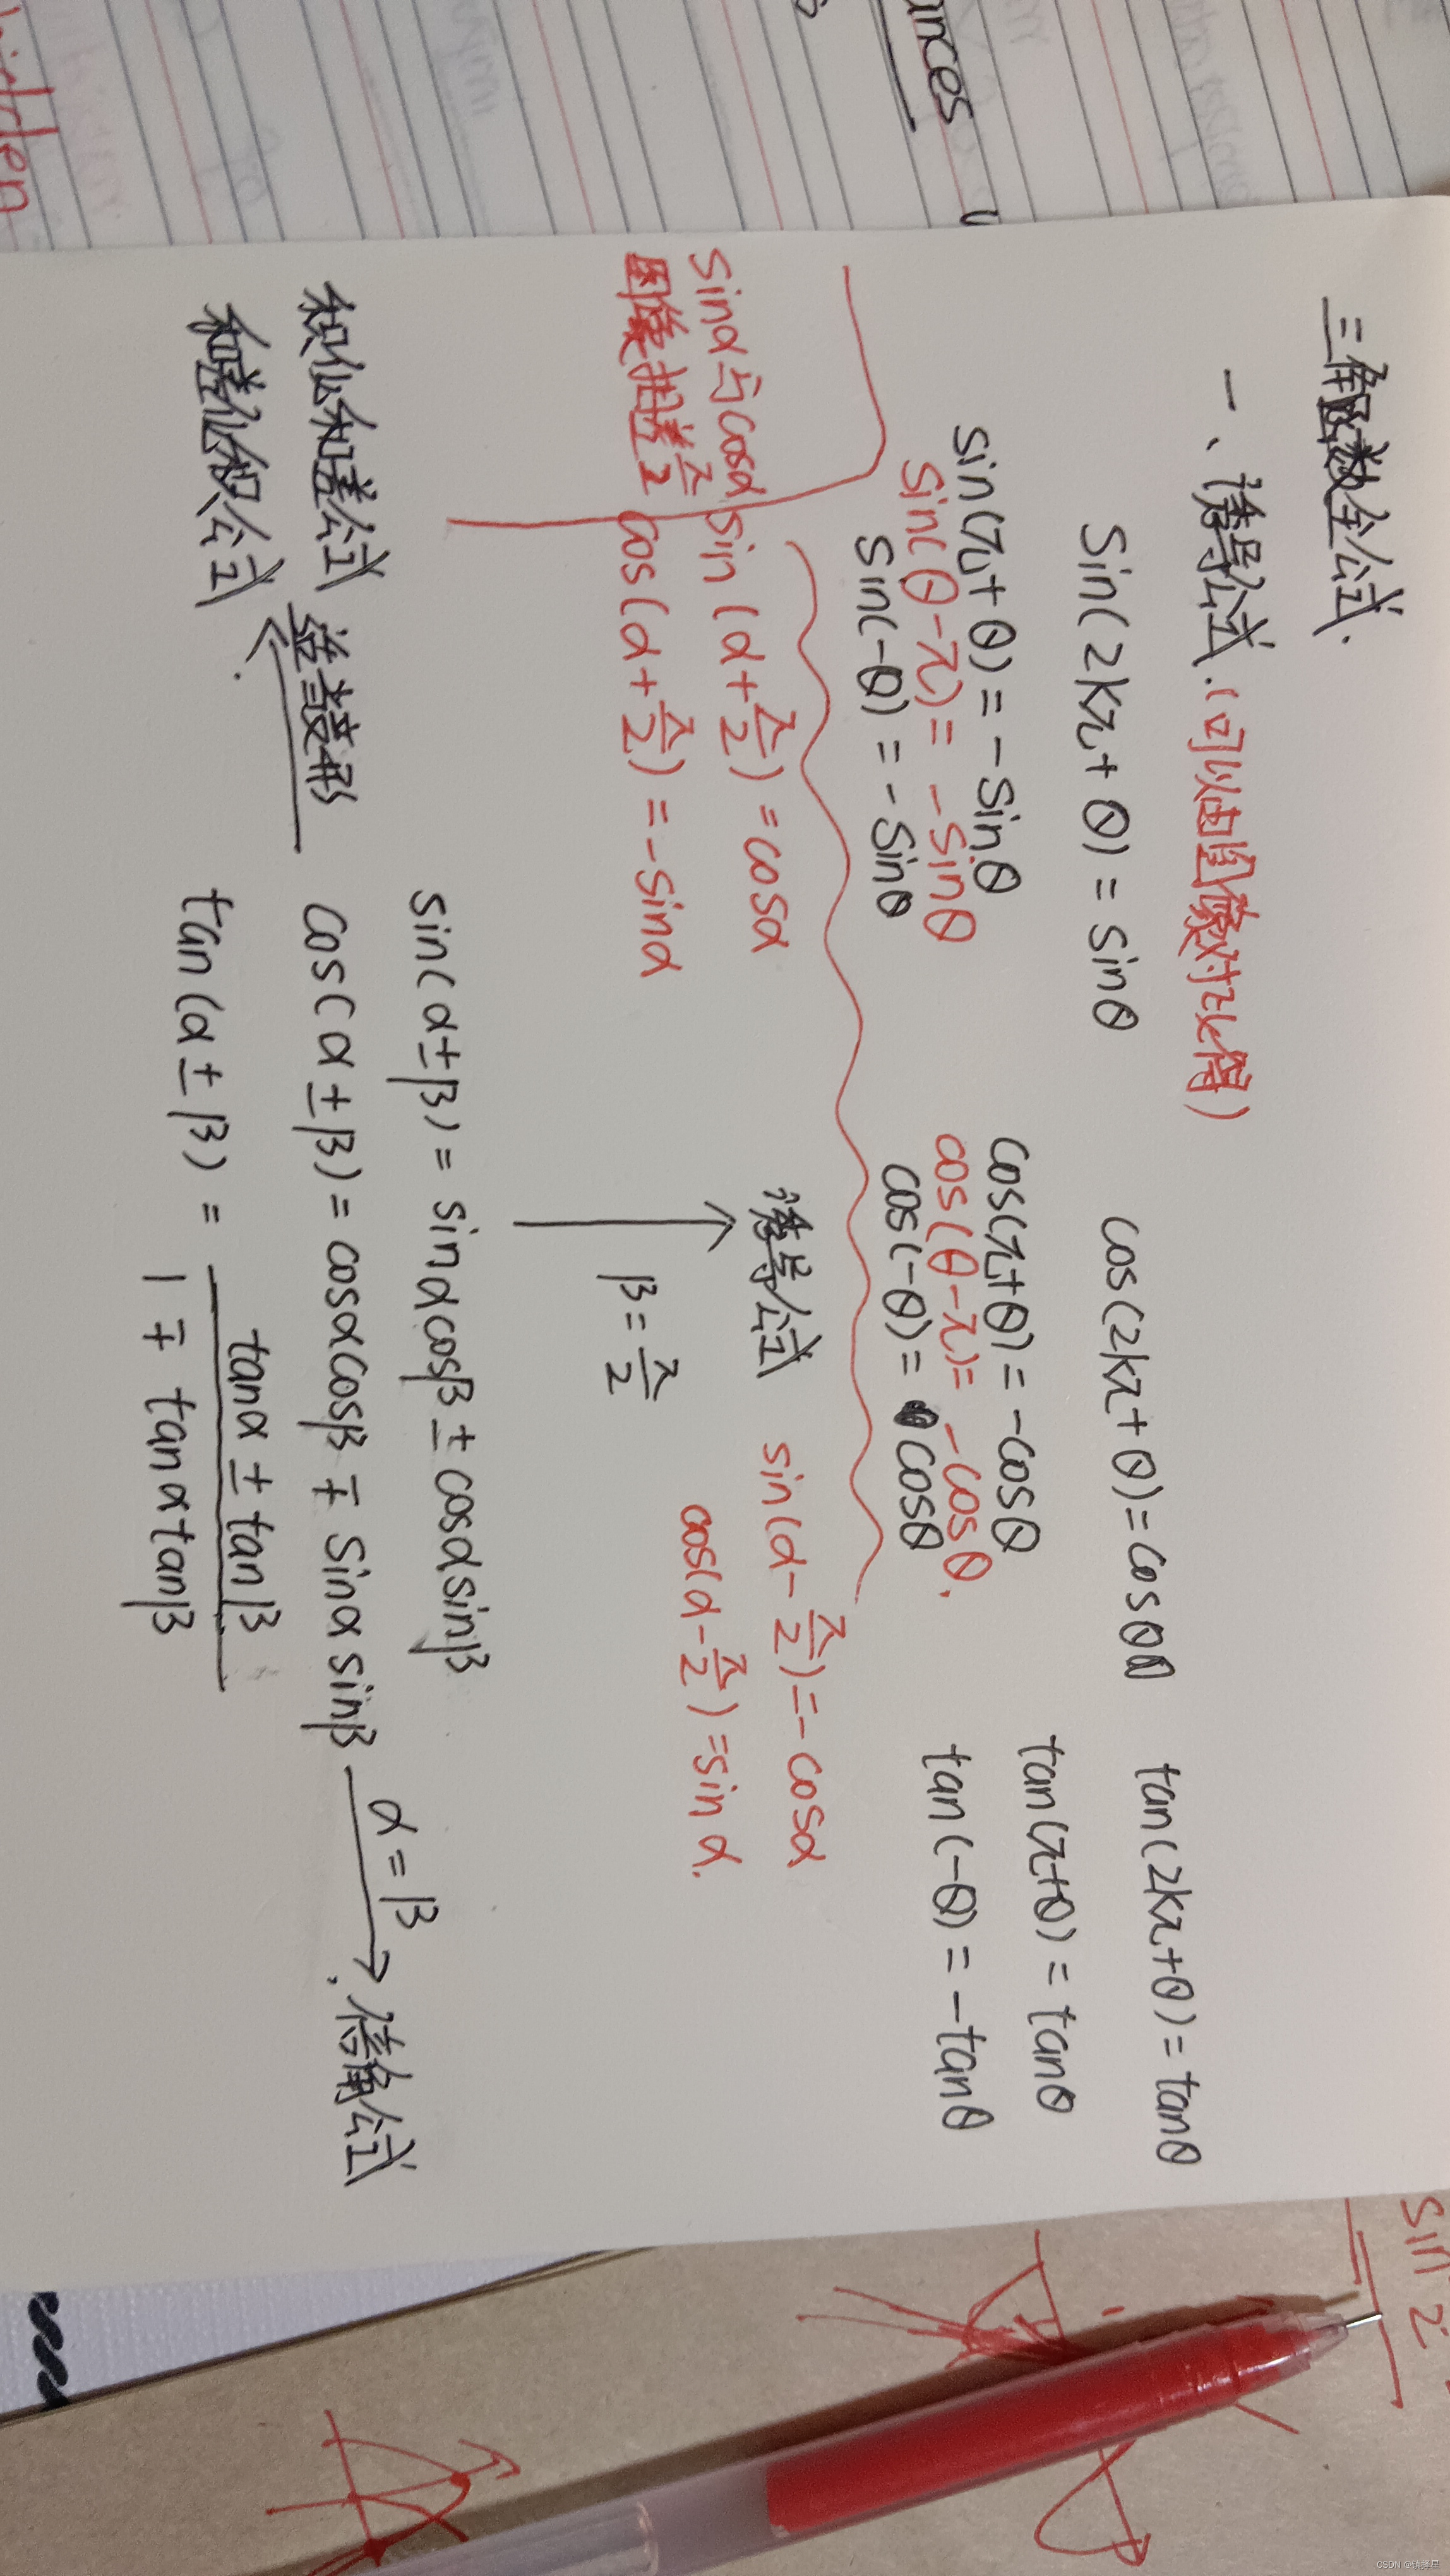 ances
hidden
三角函数全公式.
一、诱导公式.(可以由图像对比得)
sin(2kπ+θ)=sinθ cos(2kπ+θ)=cosθ tan(2kπ+θ)=tanθ
sin(π+θ)=-sinθ cos(π+θ)=-cosθ tan(π+θ)=tanθ
sin(θ-π)=-sinθ cos(θ-π)=-cosθ.
sin(-θ)=-sinθ cos(-θ)=cosθ tan(-θ)=-tanθ
sinα与cosα
图像相差π/2
sin(α+π/2)=cosα 诱导公式 sin(α-π/2)=-cosα
cos(α+π/2)=-sinα β=π/2 cos(α-π/2)=sinα.
sin(α±β)=sinαcosβ±cosαsinβ
积化和差公式 等变形 cos(α±β)=cosαcosβ∓sinαsinβ α=β 倍角公式
和差化积公式 tan(α±β)=tanα±tanβ/1∓tanαtanβ
sin
2